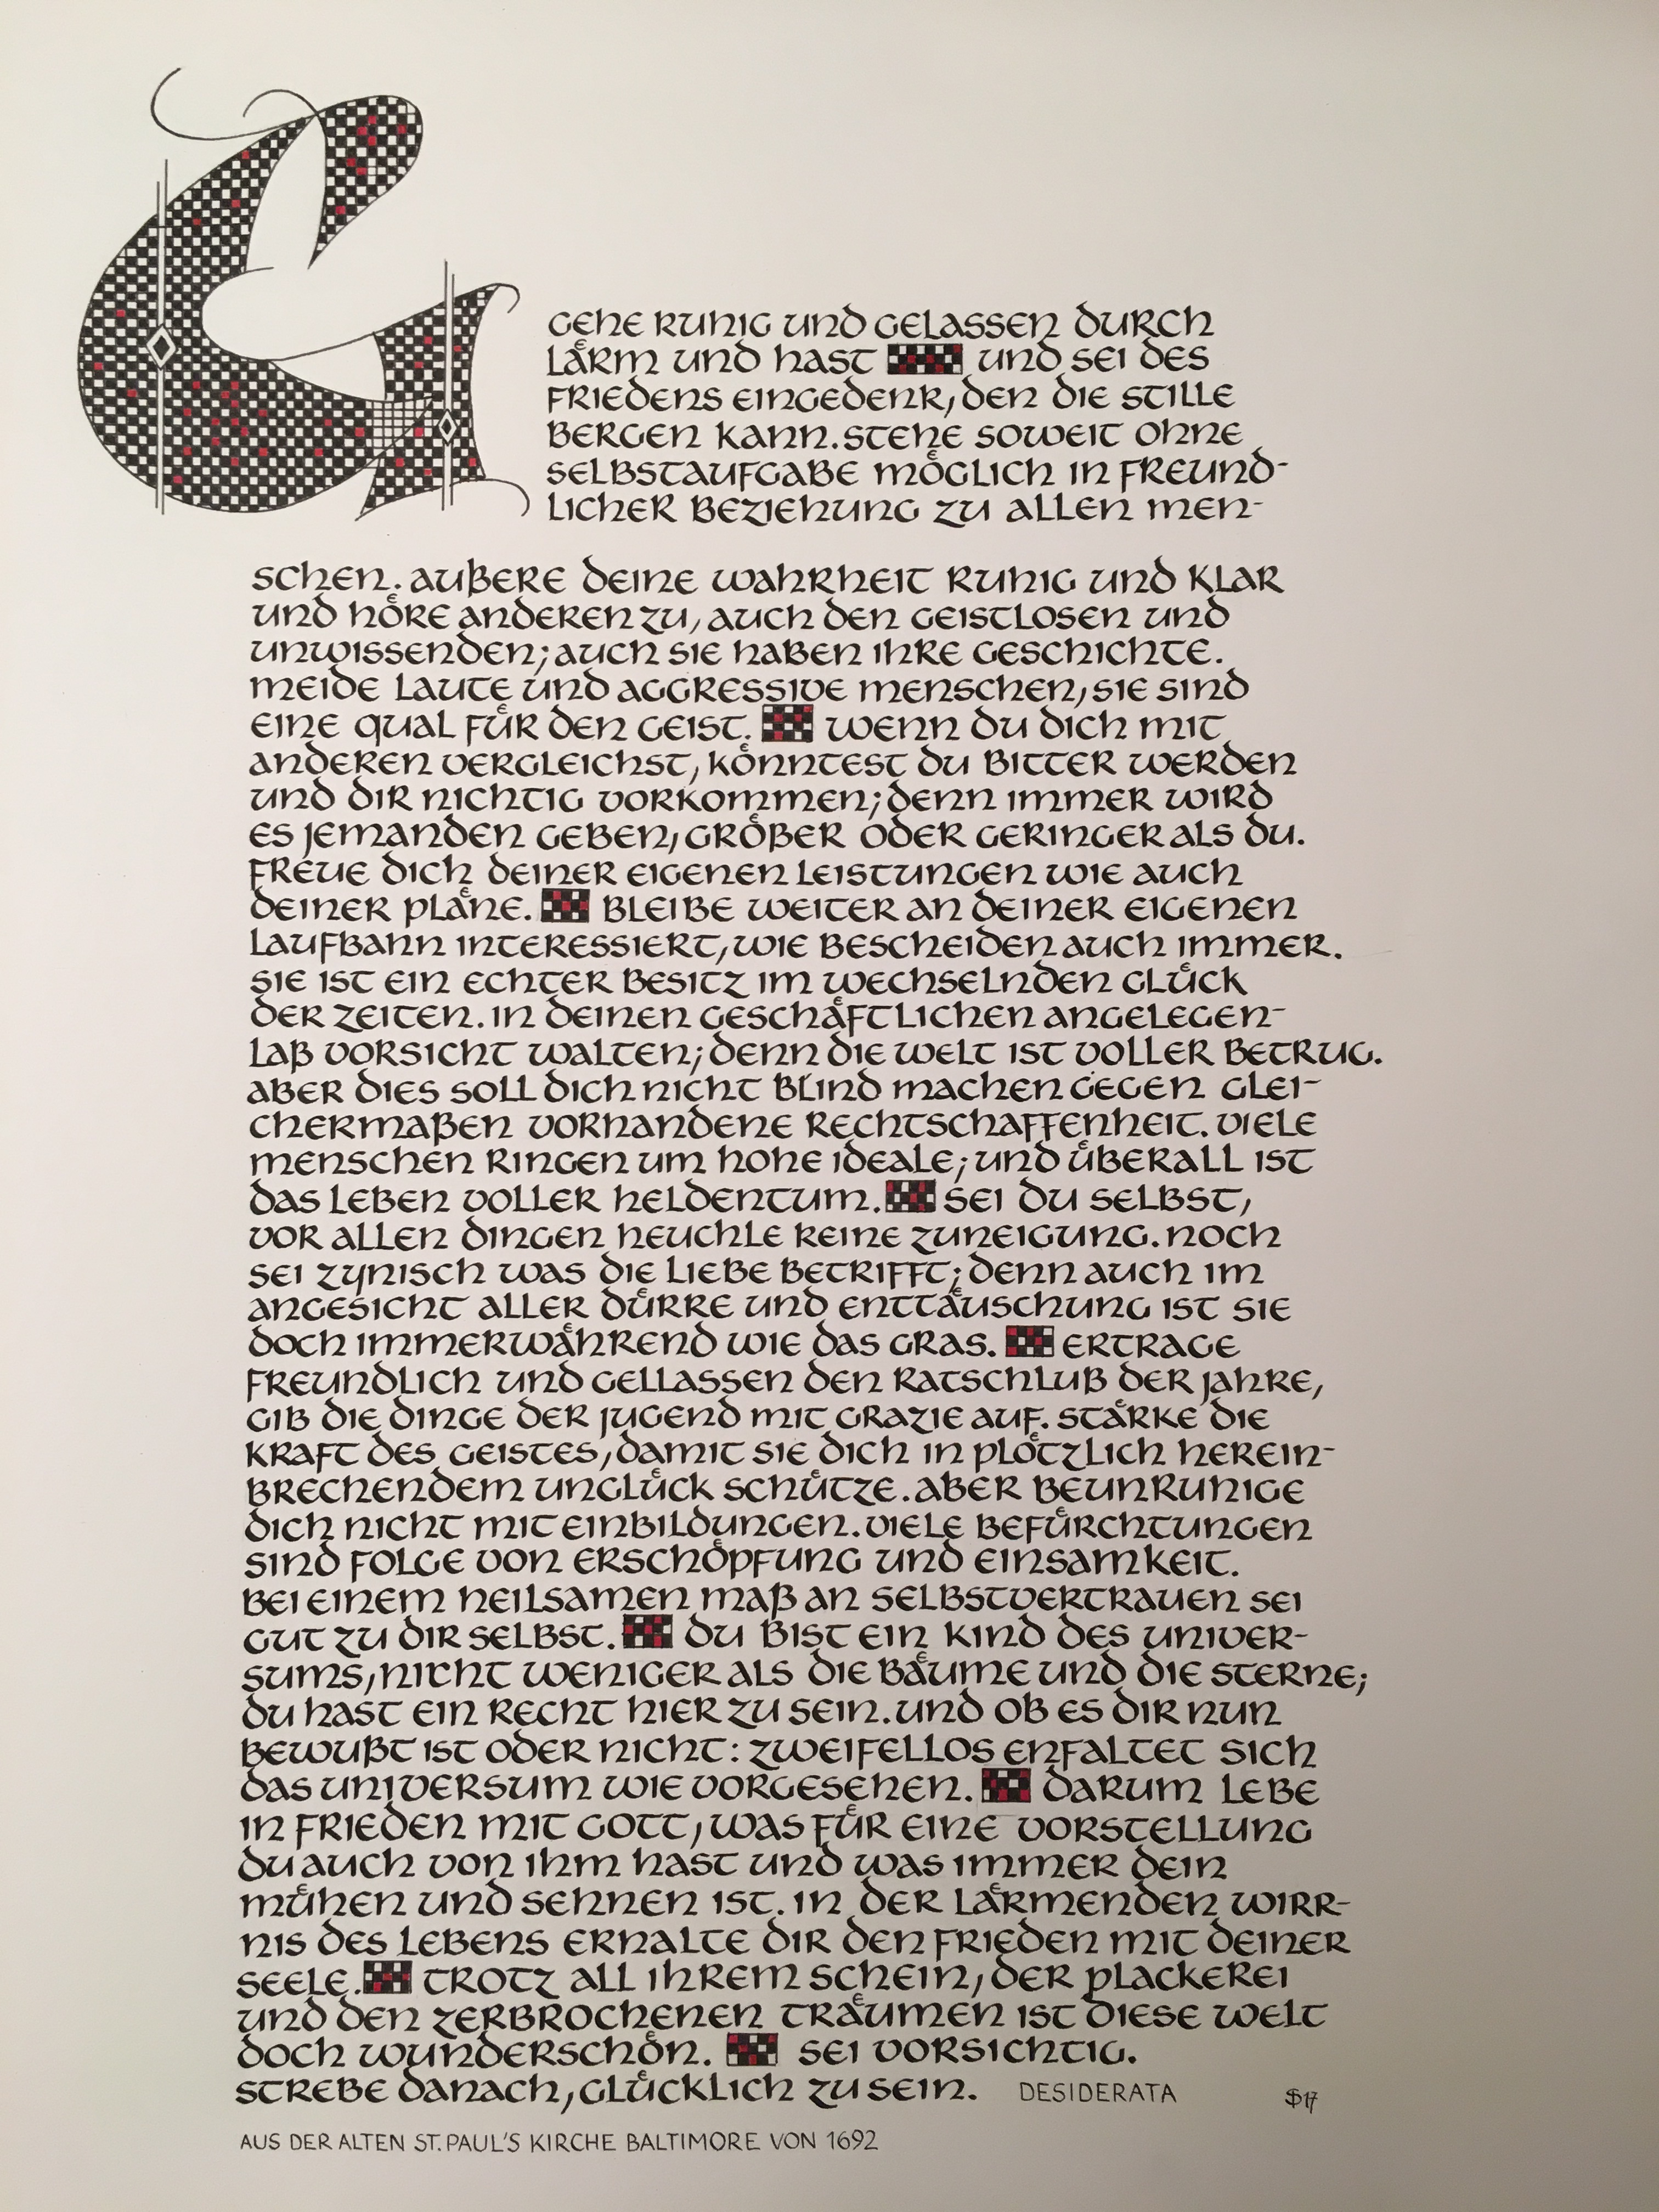 G
GEHE RUHIG UND GELASSEN DURCH
LÄRM UND HAST UND SEI DES
FRIEDENS EINGEDENK, DEN DIE STILLE
BERGEN KANN. STEHE SOWEIT OHNE
SELBSTAUFGABE MÖGLICH IN FREUND-
LICHER BEZIEHUNG ZU ALLEN MEN-
SCHEN. AUßERE DEINE WAHRHEIT RUHIG UND KLAR
UND HÖRE ANDEREN ZU, AUCH DEN GEISTLOSEN UND
UNWISSENDEN; AUCH SIE HABEN IHRE GESCHICHTE.
MEIDE LAUTE UND AGGRESSIVE MENSCHEN, SIE SIND
EINE QUAL FÜR DEN GEIST. WENN DU DICH MIT
ANDEREN VERGLEICHST, KÖNNTEST DU BITTER WERDEN
UND DIR NICHTIG VORKOMMEN; DENN IMMER WIRD
ES JEMANDEN GEBEN, GRÖßER ODER GERINGER ALS DU.
FREUE DICH DEINER EIGENEN LEISTUNGEN WIE AUCH
DEINER PLÄNE. BLEIBE WEITER AN DEINER EIGENEN
LAUFBAHN INTERESSIERT, WIE BESCHEIDEN AUCH IMMER.
SIE IST EIN ECHTER BESITZ IM WECHSELNDEN GLÜCK
DER ZEITEN. IN DEINEN GESCHÄFTLICHEN ANGELEGEN-
LAß VORSICHT WALTEN; DENN DIE WELT IST VOLLER BETRUG.
ABER DIES SOLL DICH NICHT BLIND MACHEN GEGEN GLEI-
CHERMAßEN VORHANDENE RECHTSCHAFFENHEIT. VIELE
MENSCHEN RINGEN UM HOHE IDEALE; UND ÜBERALL IST
DAS LEBEN VOLLER HELDENTUM. SEI DU SELBST,
VOR ALLEN DINGEN HEUCHLE KEINE ZUNEIGUNG. NOCH
SEI ZYNISCH WAS DIE LIEBE BETRIFFT; DENN AUCH IM
ANGESICHT ALLER DÜRRE UND ENTTÄUSCHUNG IST SIE
DOCH IMMERWÄHREND WIE DAS GRAS. ERTRAGE
FREUNDLICH UND GELLASSEN DEN RATSCHLUß DER JAHRE,
GIB DIE DINGE DER JUGEND MIT GRAZIE AUF. STÄRKE DIE
KRAFT DES GEISTES, DAMIT SIE DICH IN PLÖTZLICH HEREIN-
BRECHENDEM UNGLÜCK SCHÜTZE. ABER BEUNRUHIGE
DICH NICHT MIT EINBILDUNGEN. VIELE BEFÜRCHTUNGEN
SIND FOLGE VON ERSCHÖPFUNG UND EINSAMKEIT.
BEI EINEM HEILSAMEN MAß AN SELBSTVERTRAUEN SEI
GUT ZU DIR SELBST. DU BIST EIN KIND DES UNIVER-
SUMS, NICHT WENIGER ALS DIE BÄUME UND DIE STERNE;
DU HAST EIN RECHT HIER ZU SEIN. UND OB ES DIR NUN
BEWUßT IST ODER NICHT: ZWEIFELLOS ENFALTET SICH
DAS UNIVERSUM WIE VORGESEHEN. DARUM LEBE
IN FRIEDEN MIT GOTT, WAS FÜR EINE VORSTELLUNG
DU AUCH VON IHM HAST UND WAS IMMER DEIN
MÜHEN UND SEHNEN IST. IN DER LÄRMENDEN WIRR-
NIS DES LEBENS ERHALTE DIR DEN FRIEDEN MIT DEINER
SEELE. TROTZ ALL IHREM SCHEIN, DER PLACKEREI
UND DEN ZERBROCHENEN TRÄUMEN IST DIESE WELT
DOCH WUNDERSCHÖN. SEI VORSICHTIG.
STREBE DANACH, GLÜCKLICH ZU SEIN. DESIDERATA
AUS DER ALTEN ST. PAUL'S KIRCHE BALTIMORE VON 1692